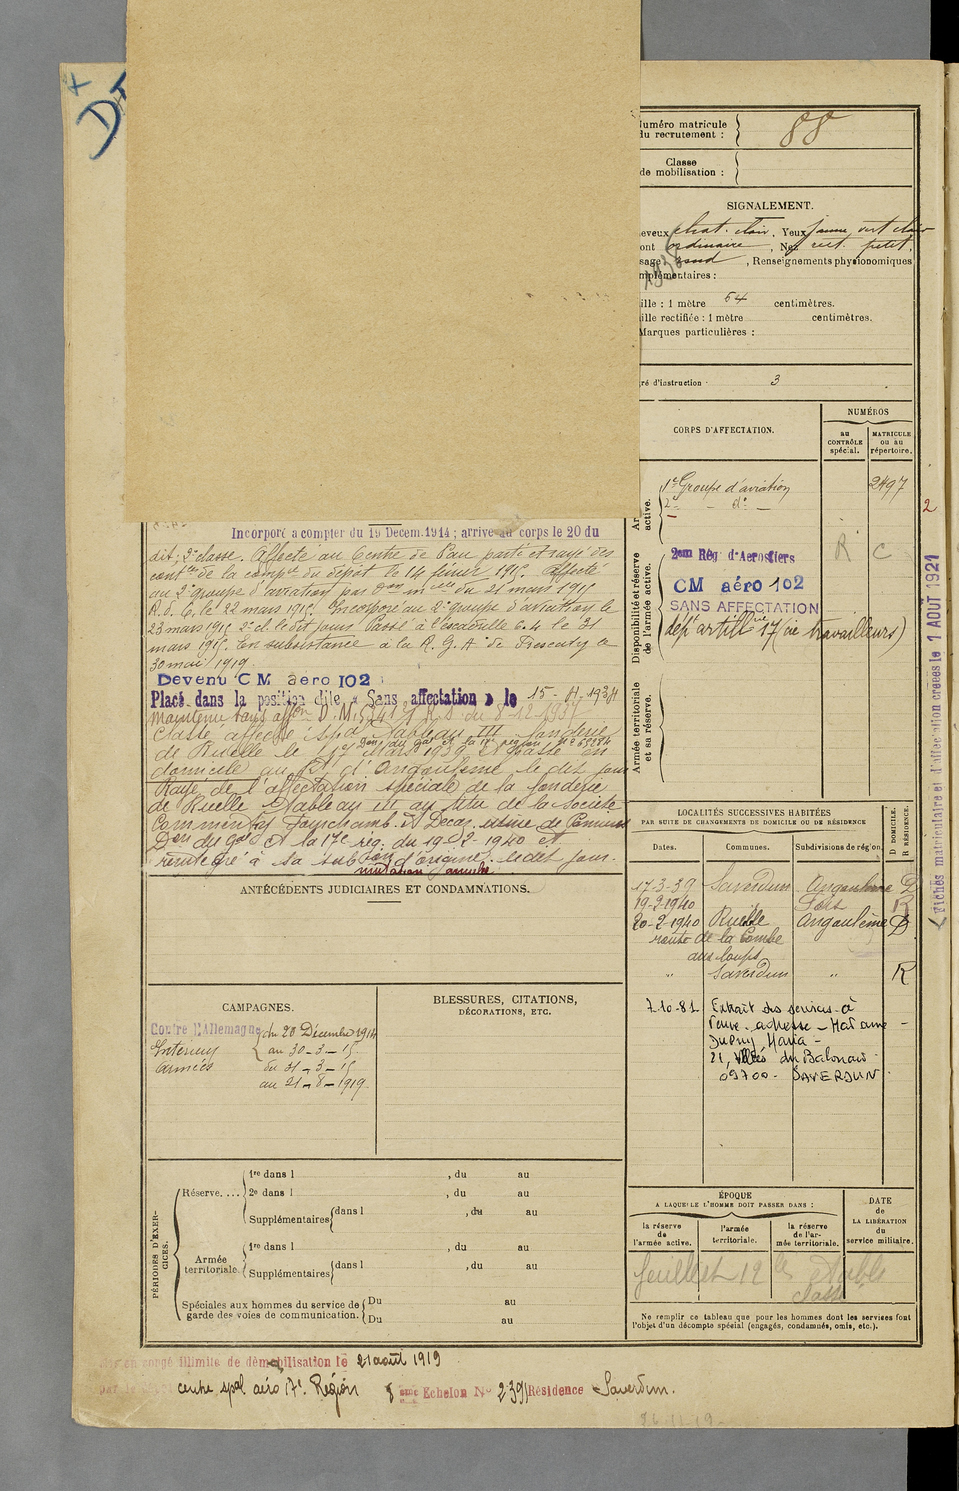 Numéro matricule
du recrutement :
88
Classe
de mobilisation :
SIGNALEMENT.
chat. clair, Yeux jaune vert clair
ordinaire, Nez rect. petit,
rond, Renseignements physionomiques
complémentaires :
1 mètre 64 centimètres.
rectifiée : 1 mètre centimètres.
Marques particulières :
d'instruction : 3
CORPS D'AFFECTATION.
NUMÉROS
au
CONTRÔLE
spécial.
MATRICULE
ou au
répertoire.
active.
1er Groupe d'aviation 2497
2e - do -
2
Disponibilité et réserve
de l'armée active.
2eme Rég. d'Aerostiers
R C
CM aéro 102
SANS AFFECTATION
dépt artillie 17 (cie travailleurs)
Armée territoriale
et sa réserve.
Incorporé à compter du 19 Décem. 1914 ; arrivé au corps le 20 du
dit, 2e classe. Affecté au Centre de Pau parti et rayé des
contles de la compie du dépôt le 14 février 1915. Affecté
au 2e groupe d'aviation par du 21 mars 1915
le 22 mars 1915. Incorporé au 2e groupe d'aviation le
23 mars 1915 2e cl. le dit jour. Passé à l'escadrille 64 le 31
mars 1915. En subsistance à la R. G. A. de Frescaty le
30 mai 1919.
Devenu CM aéro 102
Placé dans la position dite « Sans affectation » le 15-11-1934
Maintenu sans affon D. M. du 8-12-1937
Classé affecté spal Tableau III fonderie
de Ruelle le 1er Mars 1939 et passé en
domicile au d'Angoulême le dit jour
Rayé de l'affectation spéciale de la fonderie
de Ruelle tableau III au titre de la Société
Commentry Fourchamb. et Decaz. usine de Pamiers
Don du Gal Ct la 17e rég. du 19-2-1940 et
réintégré à sa subon d'origine le dit jour.
mutation annulée
ANTÉCÉDENTS JUDICIAIRES ET CONDAMNATIONS.
LOCALITÉS SUCCESSIVES HABITÉES
PAR SUITE DE CHANGEMENTS DE DOMICILE OU DE RÉSIDENCE
Dates.
Communes.
Subdivisions de région.
D DOMICILE.
R RÉSIDENCE.
17-3-39 Saverdun Angoulême D
19-2-1940 Foix R
20-2-1940 Ruelle Angoulême D
route de la Combe
aux loups
" Saverdun " R
7.10.81 Extrait des services à
Veuve. adresse - Madame
Maria -
21, du Balouard
09700 - SAVERDUN
CAMPAGNES.
Contre l'Allemagne du 20 Décembre 1914
Intérieur au 30-3-15
armées du 31-3-15
au 21-8-1919.
BLESSURES, CITATIONS,
DÉCORATIONS, ETC.
PÉRIODES D'EXERCICES.
Réserve....
1re dans l , du au
2e dans l , du au
Supplémentaires dans l , du au
, du au
Armée
territoriale
1re dans l , du au
Supplémentaires dans l , du au
Spéciales aux hommes du service de
garde des voies de communication.
Du au
Du au
ÉPOQUE
A LAQUELLE L'HOMME DOIT PASSER DANS :
la réserve
de
l'armée active.
l'armée
territoriale.
la réserve
de l'ar-
mée territoriale.
DATE
de
LA LIBÉRATION
du
service militaire.
feuillet 12
classe
Ne remplir ce tableau que pour les hommes dont les services font
l'objet d'un décompte spécial (engagés, condamnés, omis, etc.).
Fiches matriculaire et d'affectation créées le 1 AOUT 1921
Mis en congé illimité de démobilisation le 21 août 1919
par le centre spal aéro 17e Région 8 eme Echelon No 2391 Résidence Saverdun.